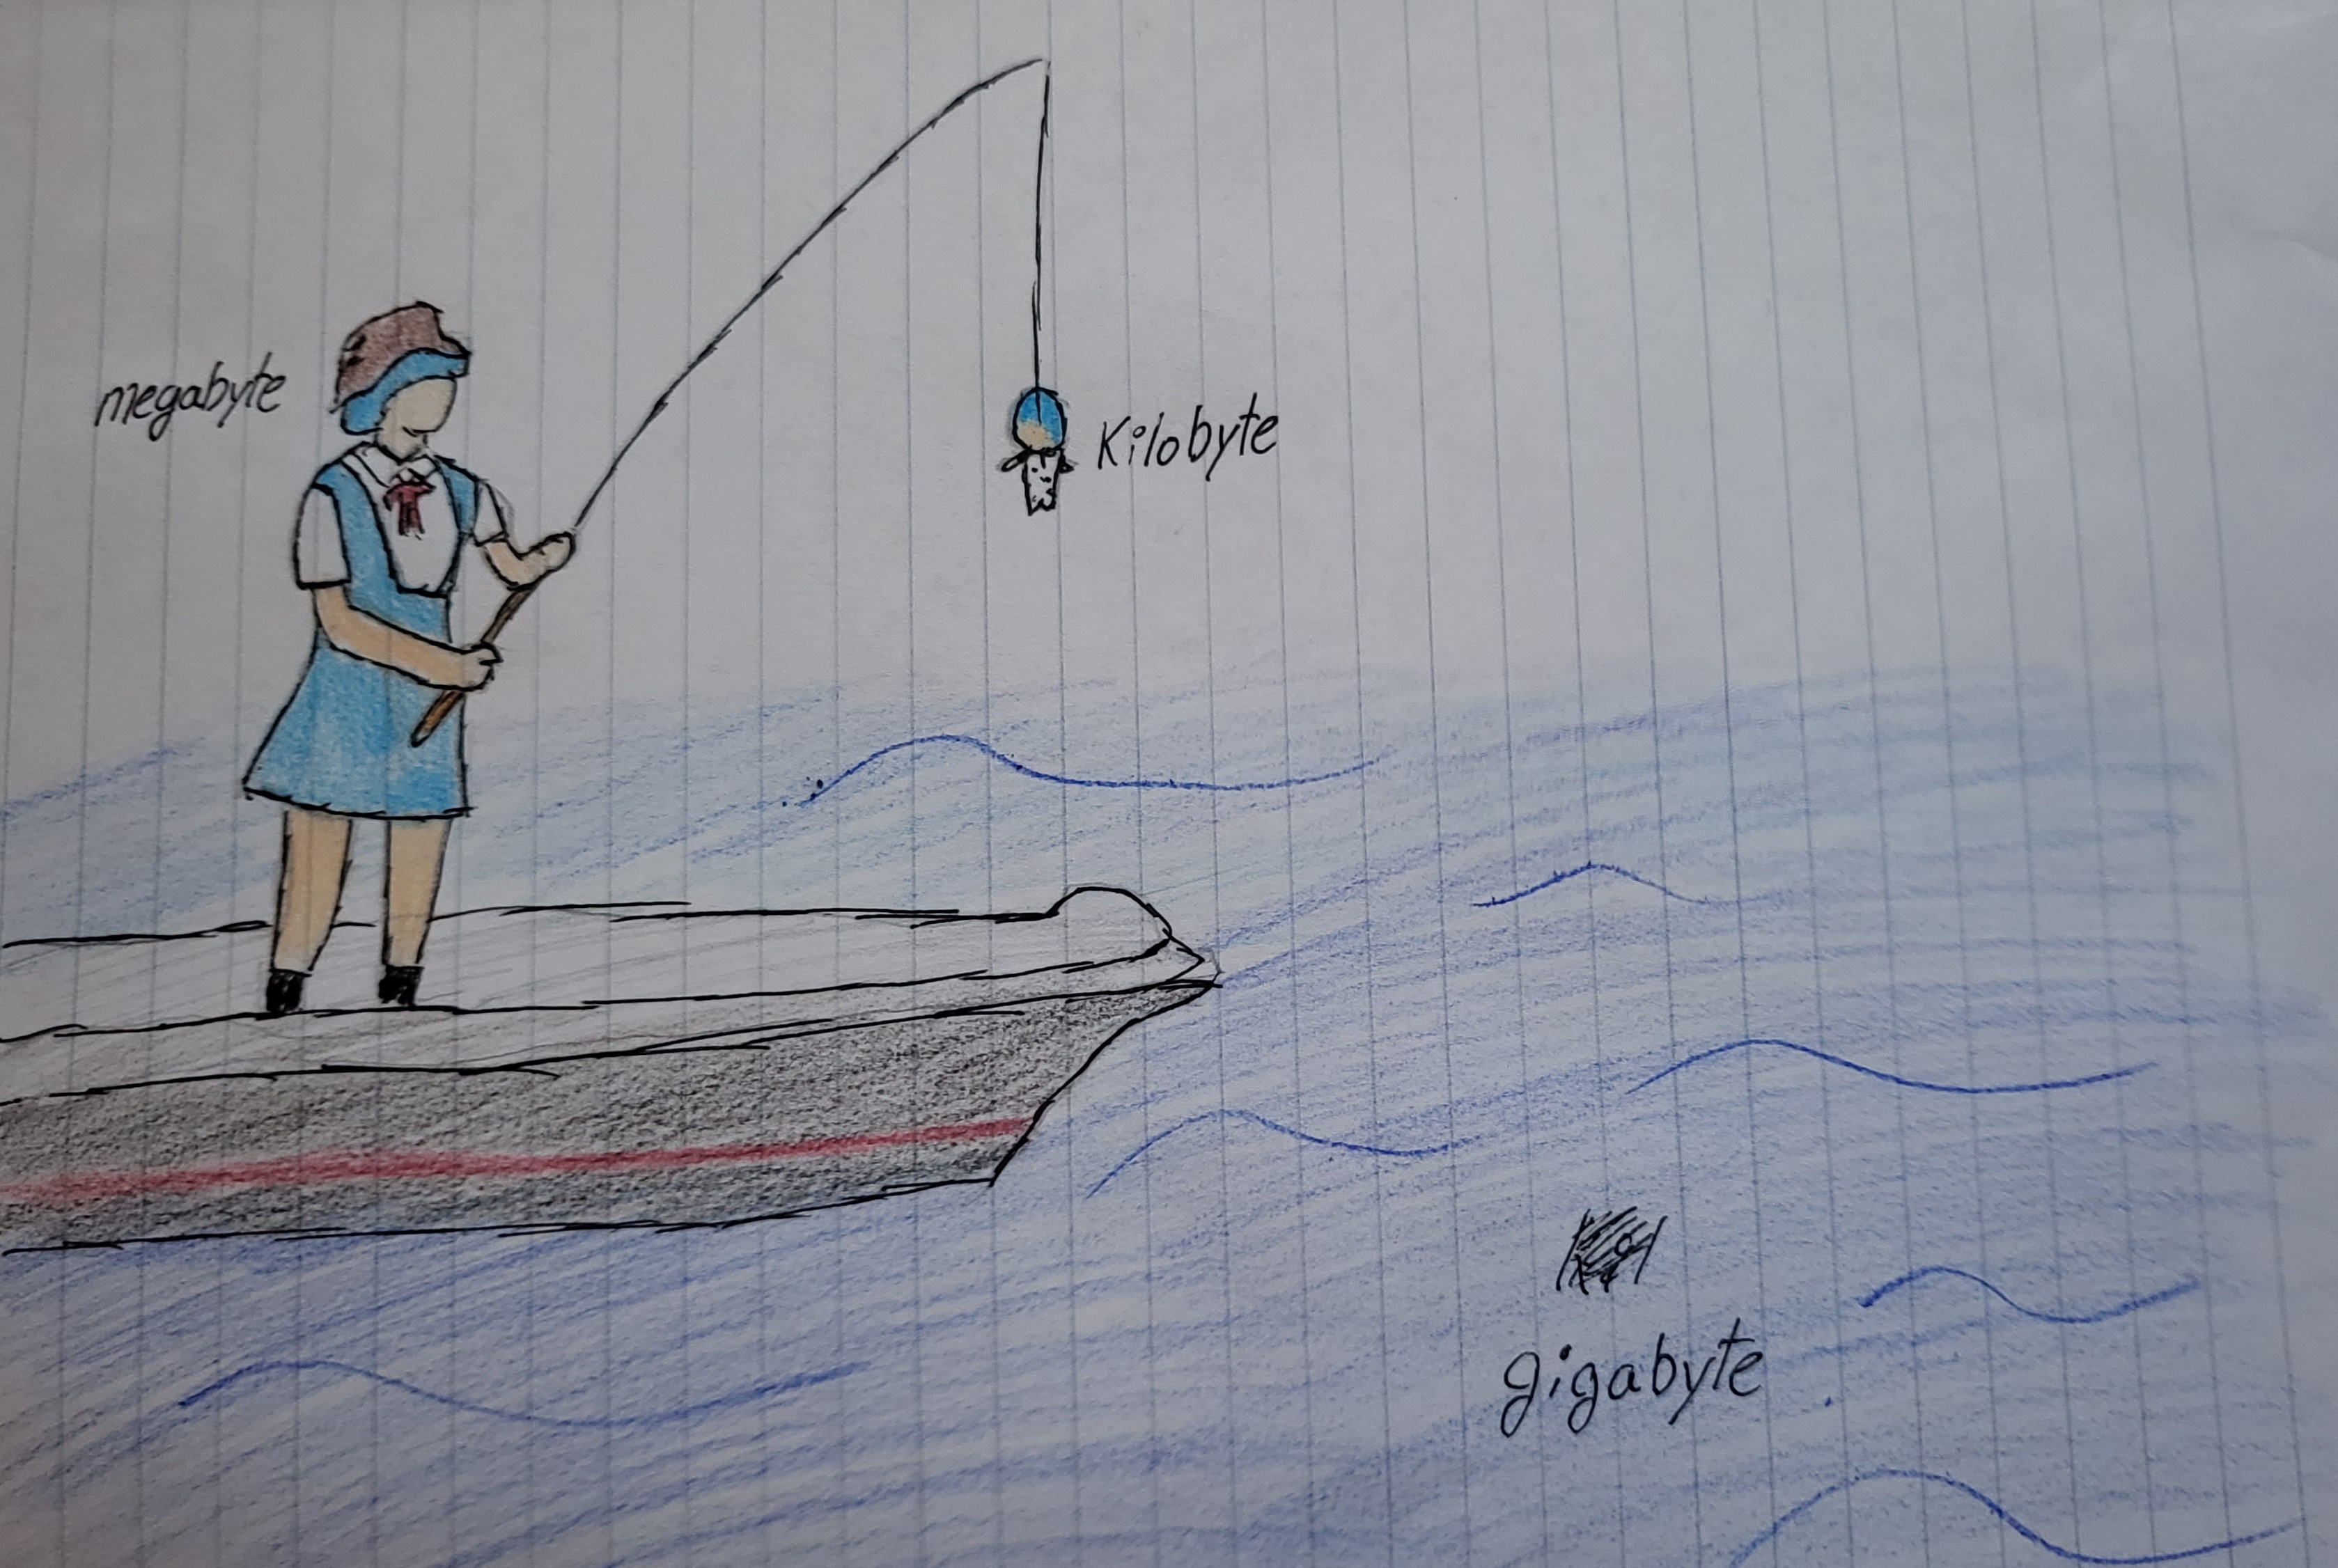 megabyte
Kilobyte
gigabyte